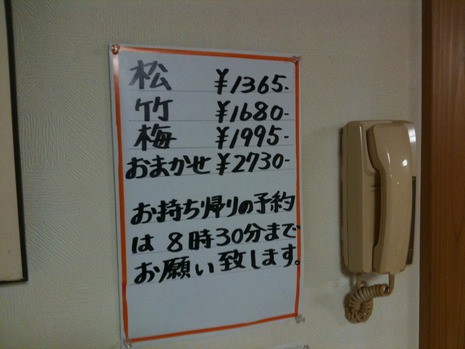 松 ¥1365-
竹 ¥1680-
梅 ¥1995-
おまかせ ¥2730-
お持ち帰りの予約
は 8時30分まで
お願い致します。